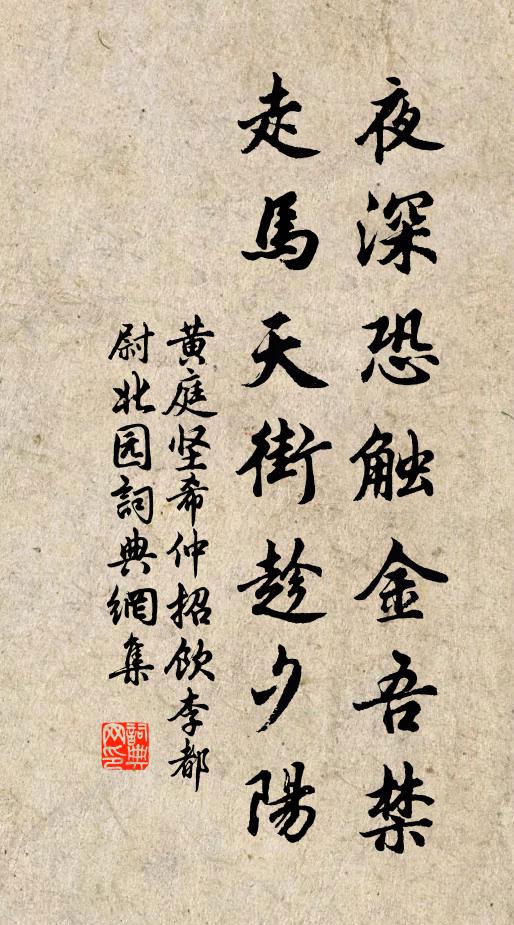 夜深恐触金吾禁
走馬天街趁夕陽
黄庭坚希仲招飲李都
尉北园詞典網集
詞典
网印